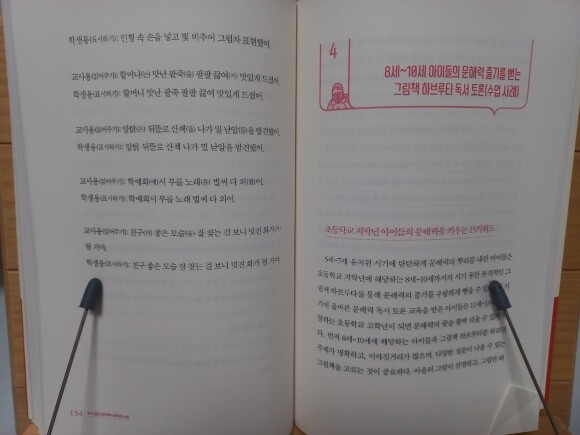 학생용(표시하기): 인형 속 손을 넣고 빛 비추어 그림자 표현했어.
교사용(읽어주기): 할머니(는) 맛난 팥죽(을) 팔팔 끓여(서) 맛있게 드셨어.
학생용(표시하기): 할머니 맛난 팥죽 팔팔 끓여 맛있게 드셨어.
교사용(읽어주기): 암탉(은) 뒤뜰로 산책(을) 나가 일 낟알(을) 발견했어.
학생용(표시하기): 암탉 뒤뜰로 산책 나가 밀 낟알을 발견했어.
교사용(읽어주기): 학예회(에)서 부를 노래(를) 벌써 다 외(웠)어.
학생용(표시하기): 학예회서 부를 노래 벌써 다 외어.
교사용(읽어주기): 친구(의) 좋은 모습(을) 잘 찾는 걸 보니 멋진 화가(가)
될 거야.
학생용(표시하기): 친구 좋은 모습 잘 찾는 걸 보니 멋진 화가 될 거야
154
4
8세~10세 아이들의 문해력 줄기를 뻗는
그림책 하브루타 독서 토론(수업 사례)
초등학교 저학년 아이들의 문해력을 키우는 15키워드
5세~7세 유치원 시기에 탄탄하게 문해력의 뿌리를 내린 아이들은
초등학교 저학년에 해당하는 8세~10세까지의 시기 동안 본격적인 그
림책 하브루타를 통해 문해력의 줄기를 우람하게 뻗을 수 있
기에 올바른 문해력 독서 토론 교육을 받은 아이들은 11세~13세
당하는 초등학교 고학년이 되면 문해력의 꽃을 활짝 피울 수 있
다. 먼저 8세~10세에 해당하는 아이들과 그림책 하브루타를 하려면
주제가 명확하고, 이야깃거리가 많으며, 다양한 질문이 나올 수 있는
그림책을 고르는 것이 중요하다. 아울러 그림이 선명하고, 그림만 봐